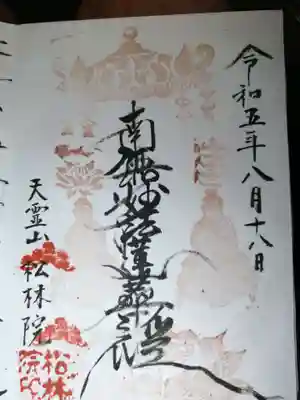 令和五年八月十八日
南無妙法蓮華経
天霊山 松林院
松林
院